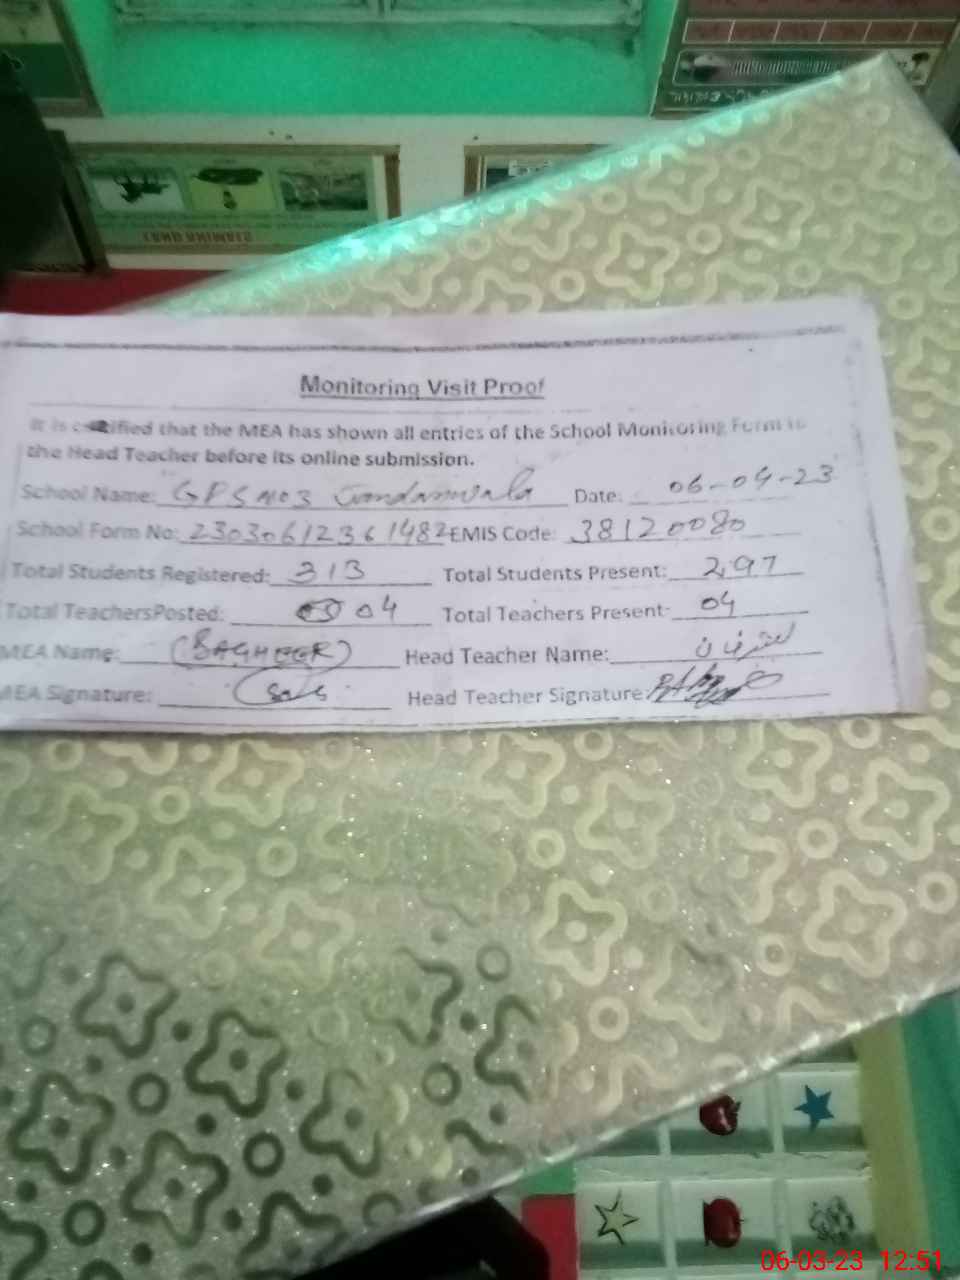 Monitoring Visit Proof
It is certified that the MEA has shown all entries of the School Monitoring Form to
the Head Teacher before its online submission.
School Name: GPS NO 3 Jandanwala Date: 06-04-23
School Form No: 23030612361482 EMIS Code: 38120080
Total Students Registered: 313 Total Students Present: 297
Total TeachersPosted: 04 Total Teachers Present: 04
MEA Name: (BAGHEER) Head Teacher Name:
MEA Signature: Head Teacher Signature:
06-03-23 12:51